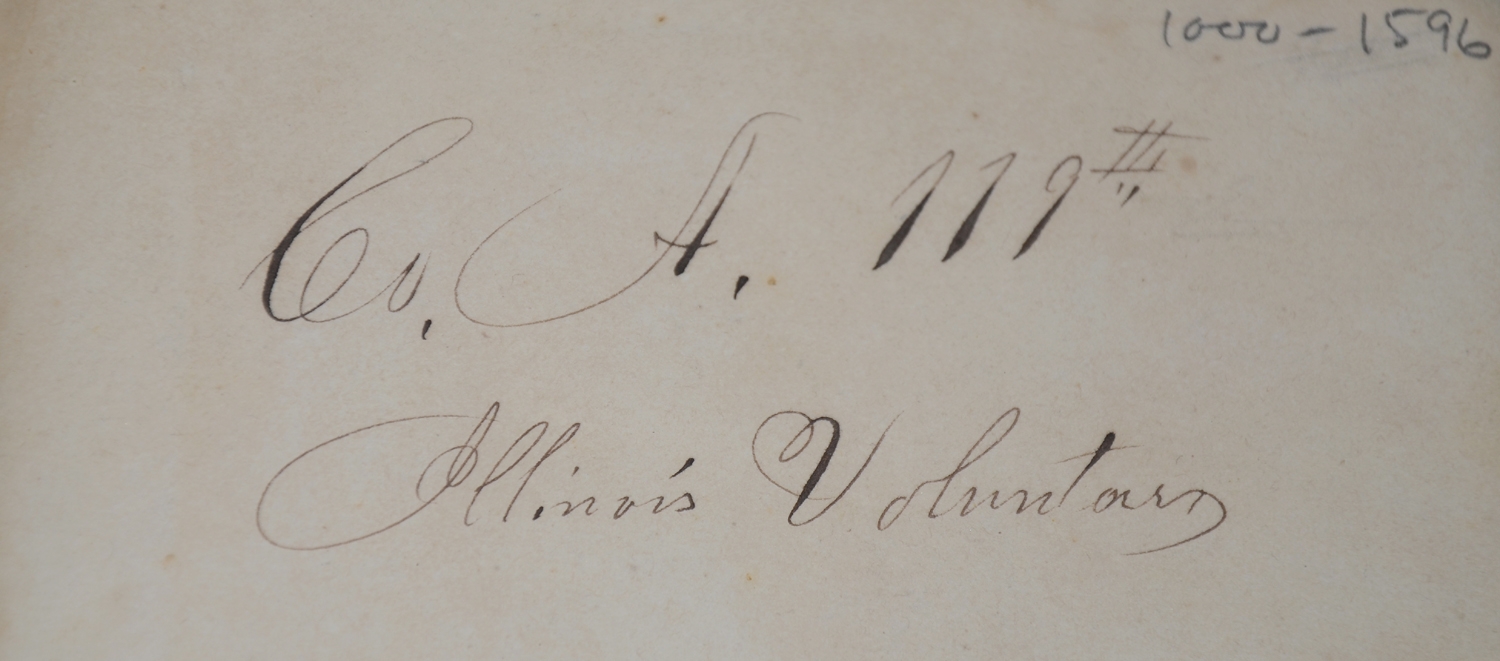 1000-1596
Co. A. 119th
Illinois Voluntars